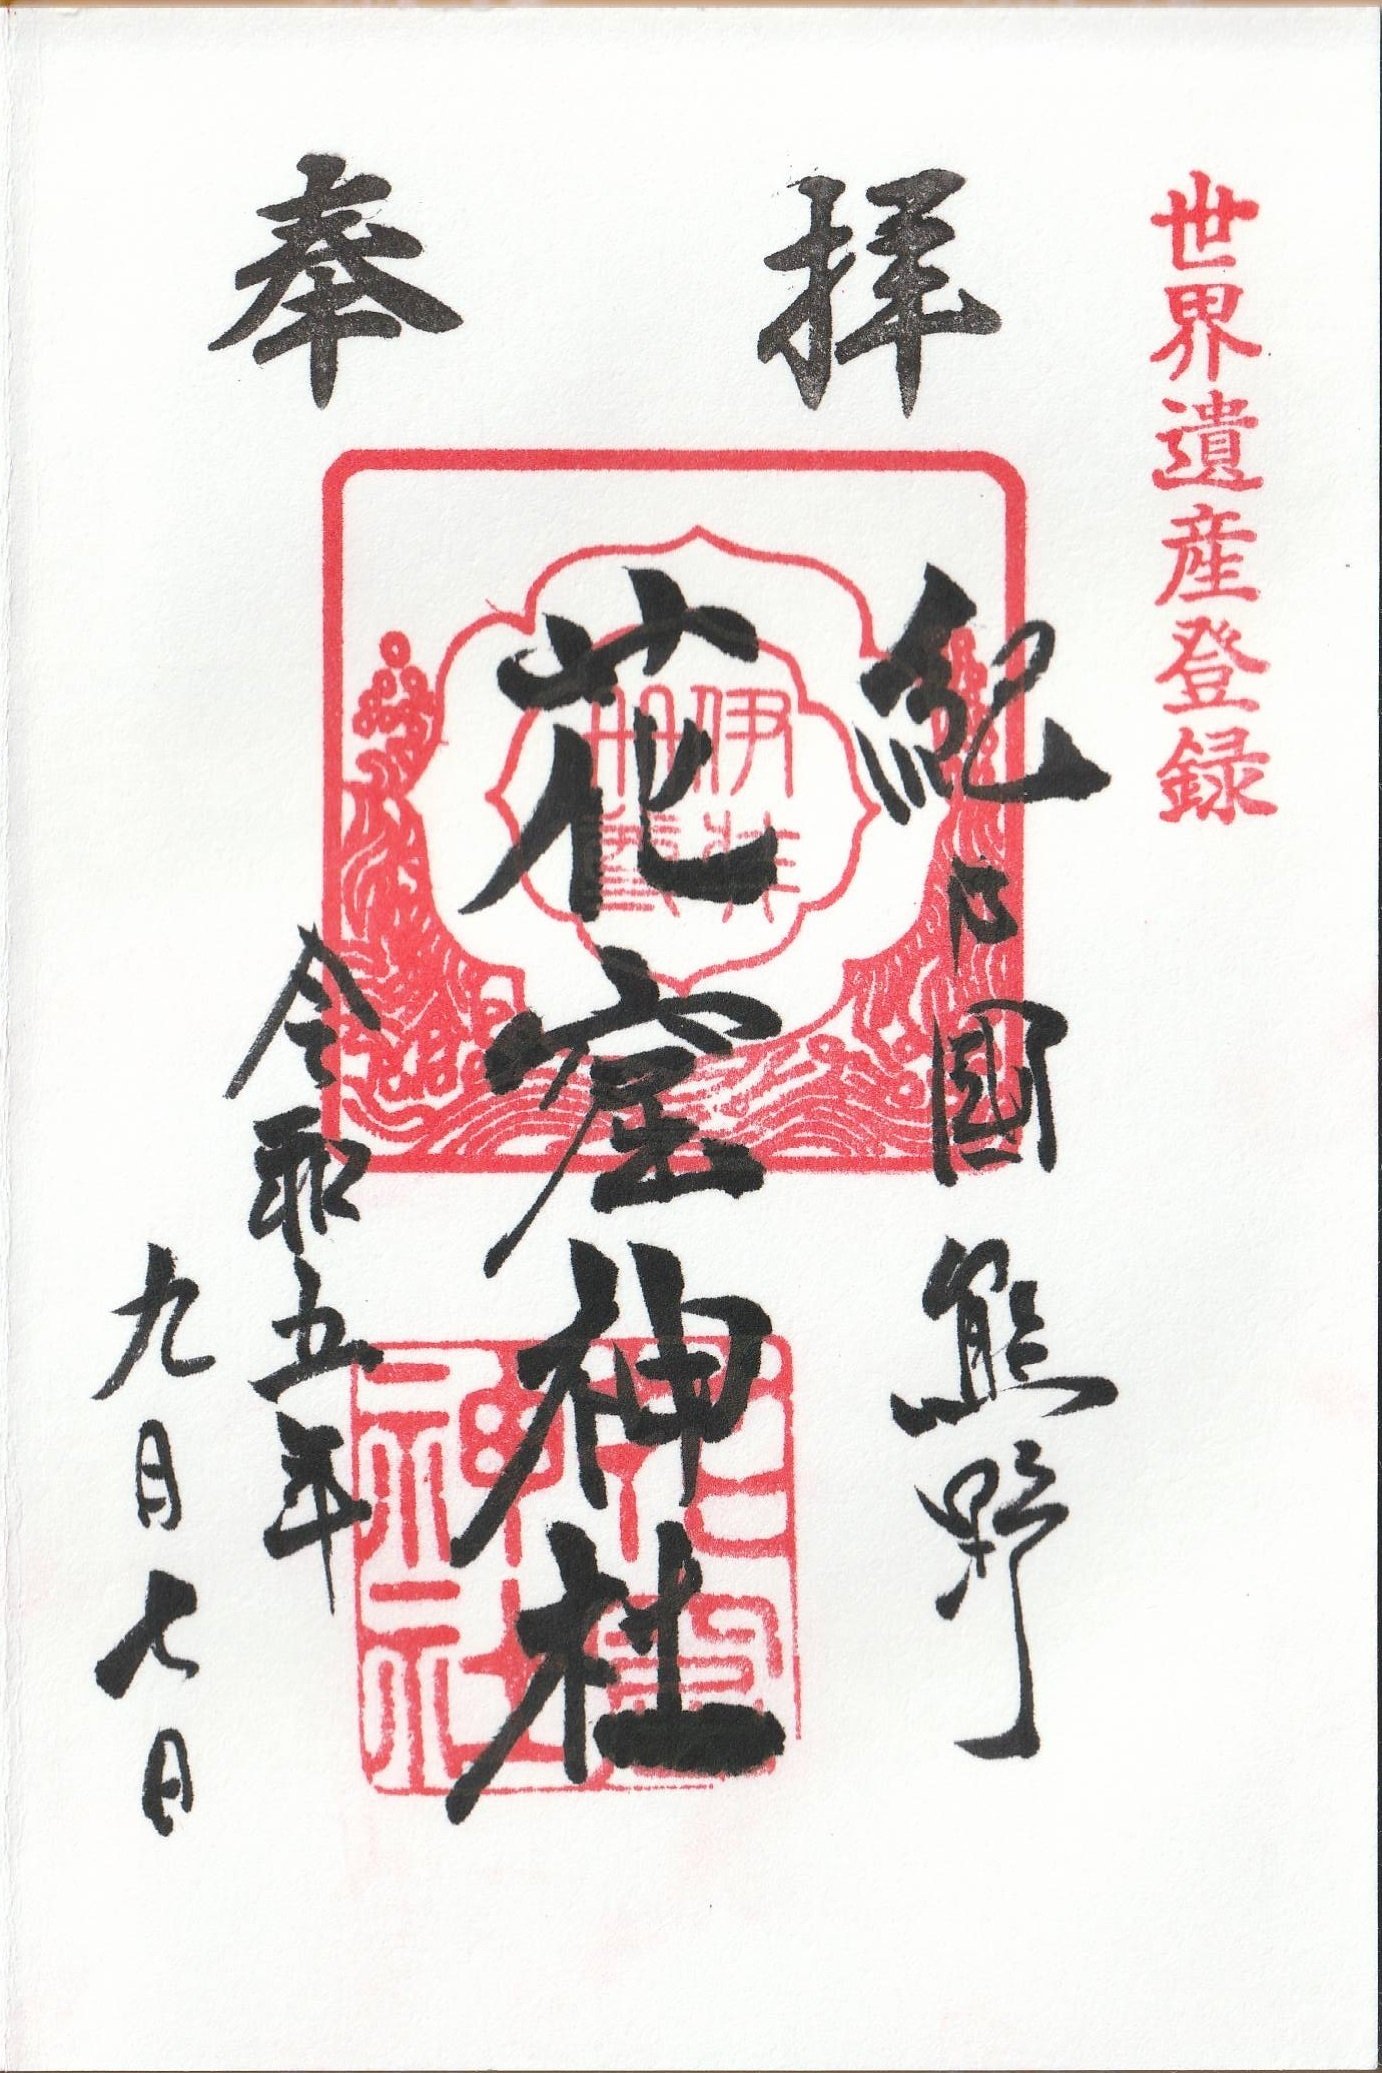 世界遺産登録
奉拝
紀國熊野
花窟神社
令和五年
九月七日
伊弉
冊尊
花窟
神社